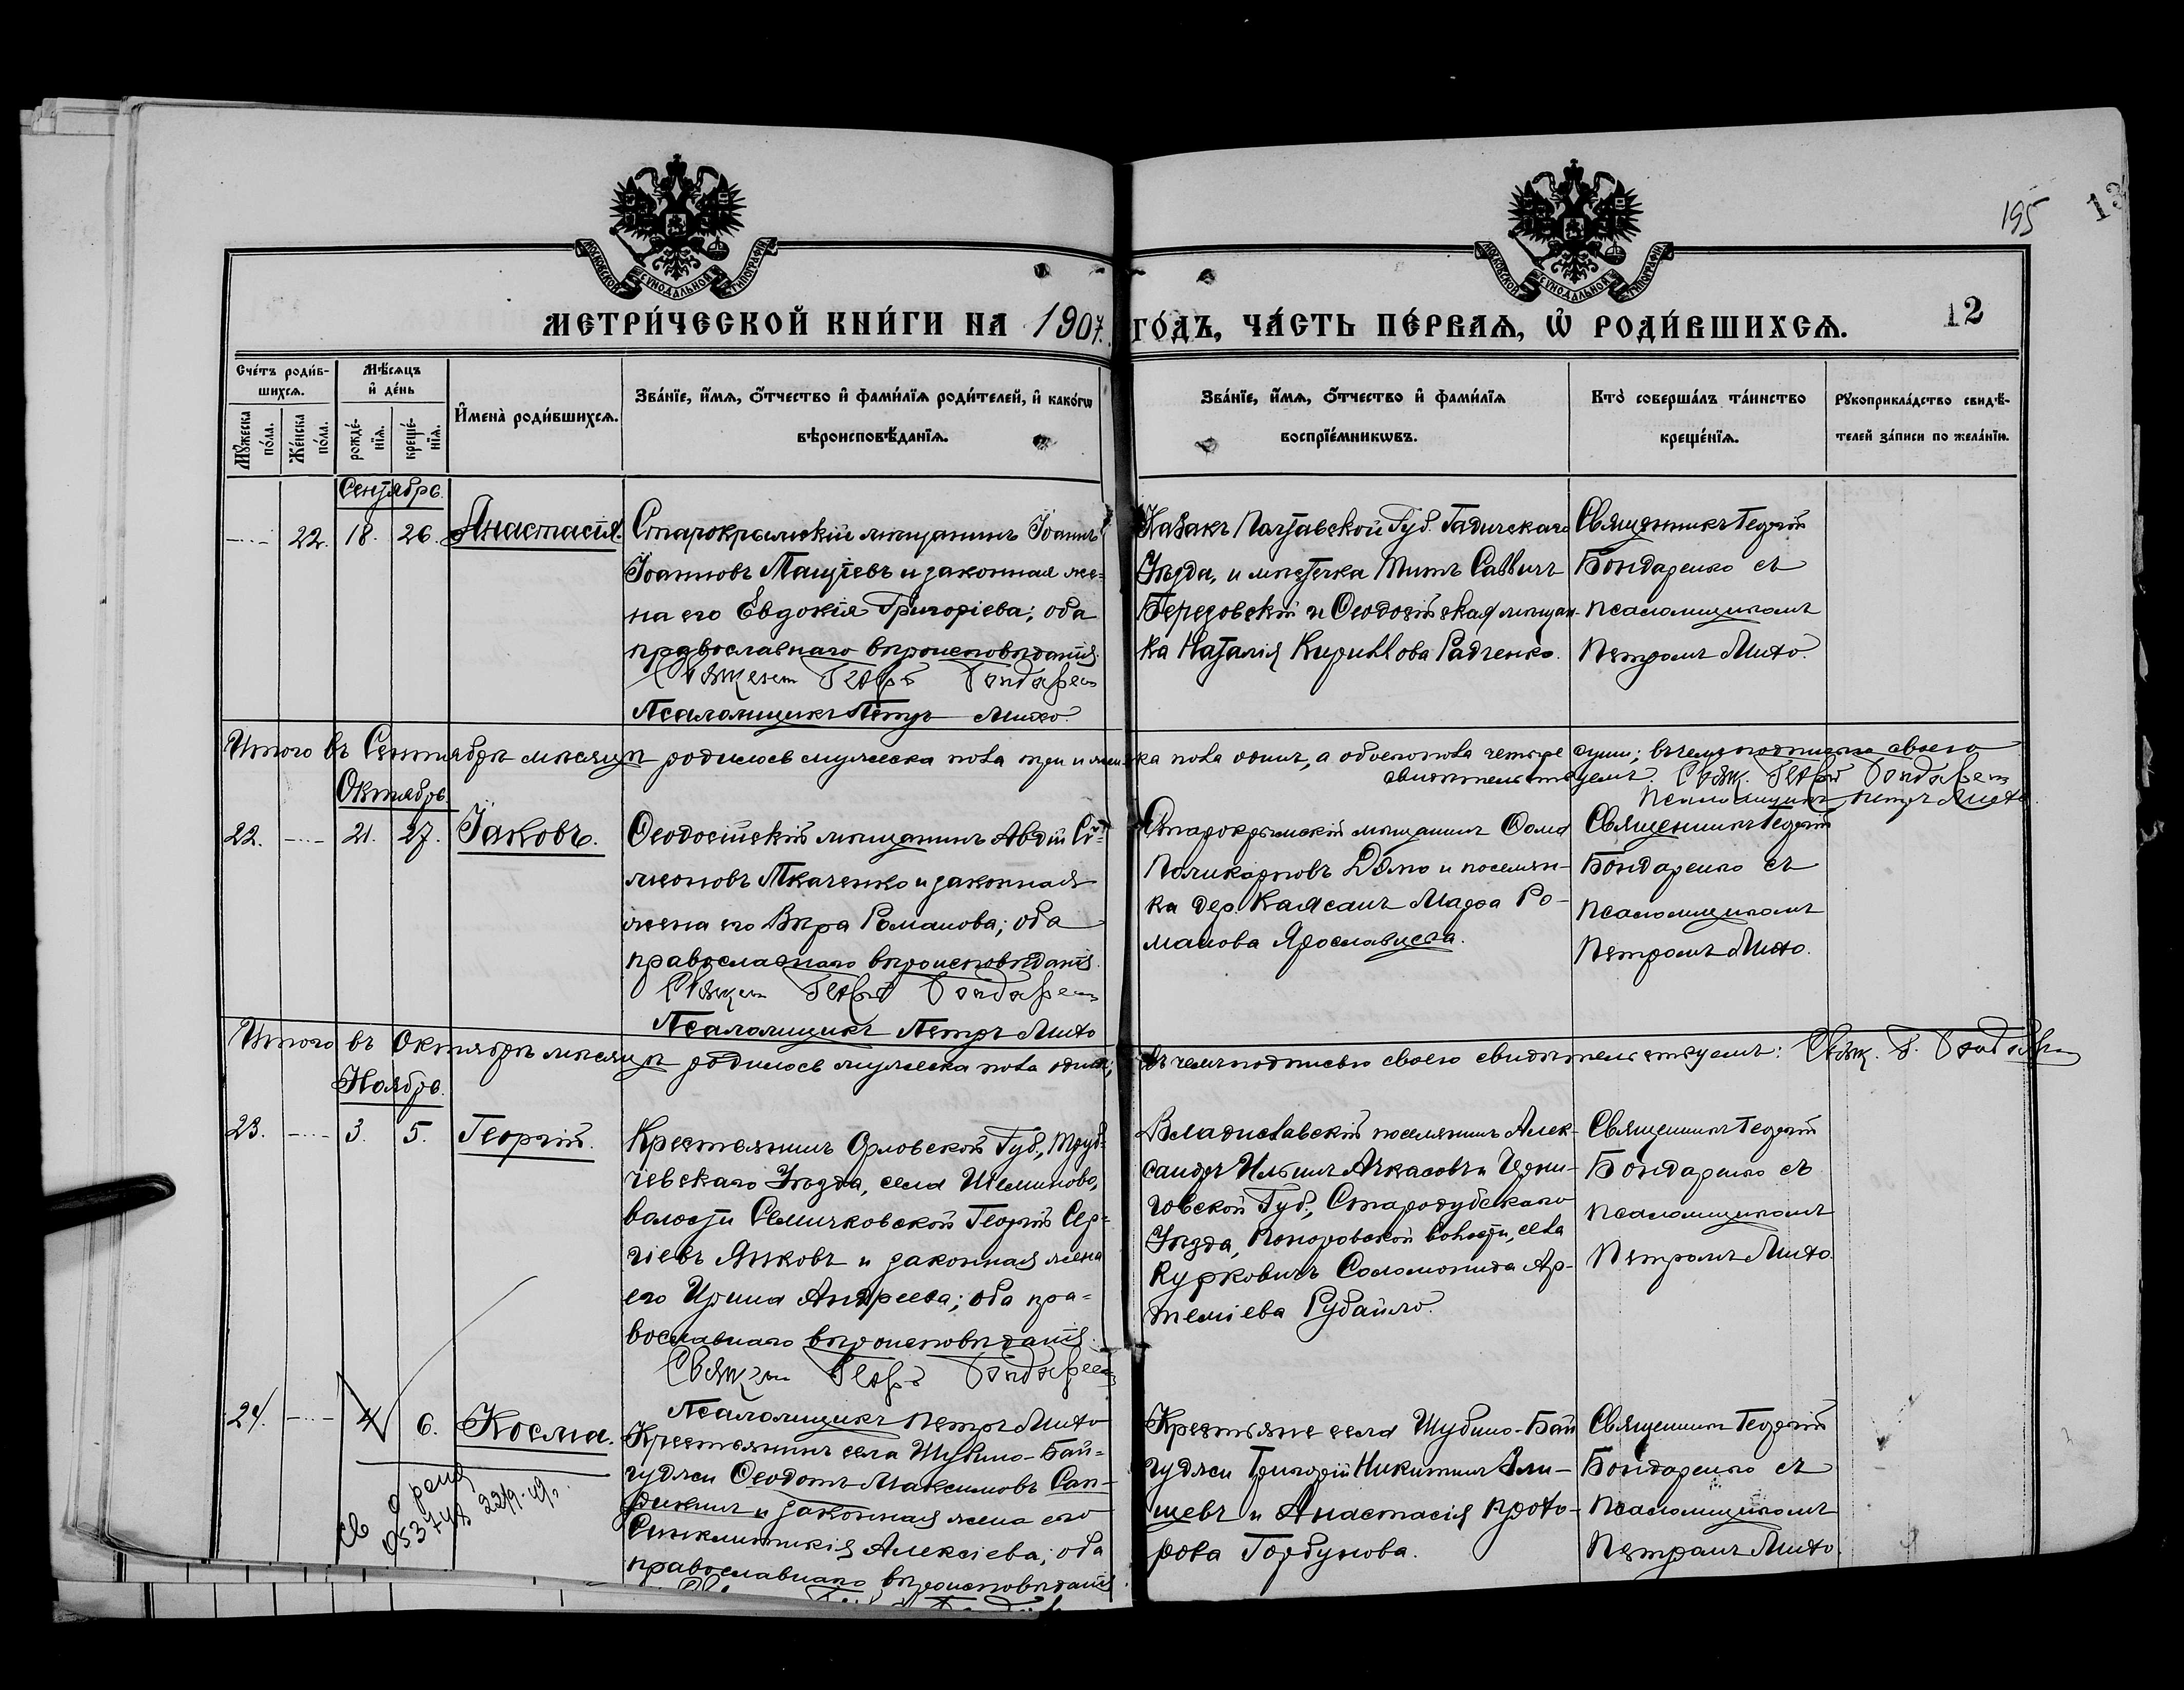 195
13
МОСКОВСКОЙ СѴНОДАЛЬНОЙ ТИПОГРАФІИ
МОСКОВСКОЙ СѴНОДАЛЬНОЙ ТИПОГРАФІИ
МЕТРИ́ЧЕСКОЙ КНИ́ГИ НА 1907. ГО́ДЪ, ЧА́СТЬ ПЕ́РВАѦ, Ѡ҆ РОДИ́ВШИХСѦ.
12
Сче́тъ роди́вшихсѧ.
Мꙋ́жеска по́ла.
Же́нска по́ла.
Мѣ́сѧцъ и҆ де́нь
рожде́нїѧ.
креще́нїѧ.
И҆мена̀ роди́вшихсѧ.
Зва́нїе, и҆́мѧ, ѻ҆́тчество и҆ фами́лїѧ роди́телей, и҆ како́гѡ
вѣроисповѣ́данїѧ.
Зва́нїе, и҆́мѧ, ѻ҆́тчество и҆ фами́лїѧ
воспрїе́мникѡвъ.
Кто̀ соверша́лъ та́инство
креще́нїѧ.
Рꙋкоприкла́дство свидѣ́телей за́писи по жела́нїю.
Сентябрь.
22. 18. 26. Анастасія.
Старокрымскій мѣщанинъ Іоаннъ
Іоанновъ Пащіевъ и законная же-
на его Евдокія Григоріева; оба
православнаго вѣроисповѣданія.
Священ Георгій Бондарен
Псаломщикъ Петръ Михо.
Козакъ Полтавской Губ. Гадячскаго
Уѣзда, и мѣстечка Титъ Саввичъ
Березовскій и Ѳеодосійская мѣщан-
ка Наталія Кириллова Радченко.
Священникъ Георгій
Бондаренко съ
псаломщикомъ
Петромъ Михо.
Итого въ Сентябрѣ мѣсяцѣ родилось мужеска пола три и женска пола одинъ, а обоего пола четыре души; въ чемъ подписью своею
свидѣтельствуемъ. Свящ. Георгій Бондарен
Псаломщикъ Петръ Михо
Октябрь.
22. 21. 27. Іаковъ.
Ѳеодосійскій мѣщанинъ Авдій Си-
меоновъ Ткаченко и законная
жена его Вѣра Романова; оба
православнаго вѣроисповѣданія.
Священ Георгій Бондарен
Псаломщикъ Петръ Михо
Старокрымскій мѣщанинъ Ѳома
Поликарповъ и поселян-
ка дер. Каясанъ Марѳа Ро-
манова Ярославцева.
Священникъ Георгій
Бондаренко съ
псаломщикомъ
Петромъ Михо.
Итого въ Октябрѣ мѣсяцѣ родилось мужеска пола одинъ; въ чемъ подписью своею свидѣтельствуемъ: Свящ. Г. Бондарен
Ноябрь.
23. 3. 5. Георгій.
Крестьянинъ Орловской Губ., Труб-
чевскаго Уѣзда, села Шеминово,
волости Семячковской Георгій Сер-
гіевъ Янковъ и законная жена
его Ирина Андреева; оба пра-
вославнаго вѣроисповѣданія.
Священ Георгій Бондарен
Псаломщикъ Петръ Михо
Владиславскій поселянинъ Алек-
сандръ Ильинъ Ачкасовъ и Черни-
говской Губ., Стародубскаго
Уѣзда, Понуровской волости, села
Курковичъ Соломонида Ар-
теміева Рубайло.
Священникъ Георгій
Бондаренко съ
псаломщикомъ
Петромъ Михо.
24. 4 6. Косма.
Крестьянинъ села Шубино-Бай-
гуджи Ѳеодотъ Максимовъ
и законная жена его
Синклитикія Алексіева; оба
православнаго вѣроисповѣданія
Крестьяне села Шубино-Бай
гуджи Григорій Никитинъ Али-
щевъ и Анастасія Прохо-
рова Горбунова.
Священникъ Георгій
Бондаренко съ
псаломщикомъ
Петромъ Михо.